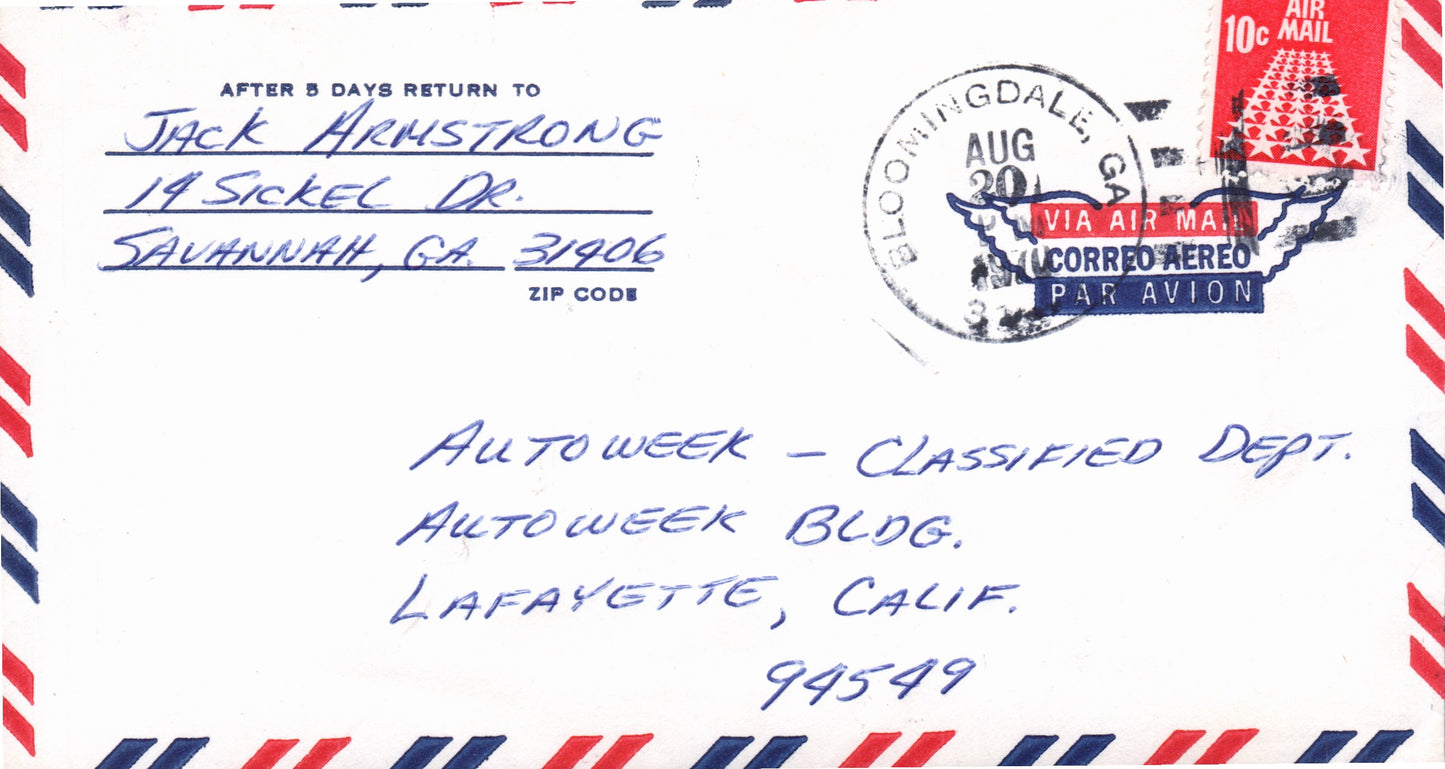 AFTER 5 DAYS RETURN TO
JACK ARMSTRONG
14 SICKEL DR.
SAVANNAH, GA. 31406
ZIP CODE
10c AIR MAIL
BLOOMINGDALE, GA
AUG
20
VIA AIR MAIL
CORREO AEREO
PAR AVION
AUTOWEEK – CLASSIFIED DEPT.
AUTOWEEK BLDG.
LAFAYETTE, CALIF.
94549